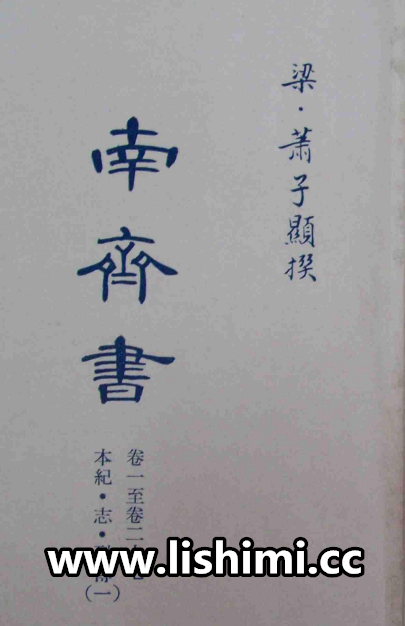 梁·蕭子顯撰
南齊書
卷一至卷二
本紀·志·
(一)
www.lishimi.cc